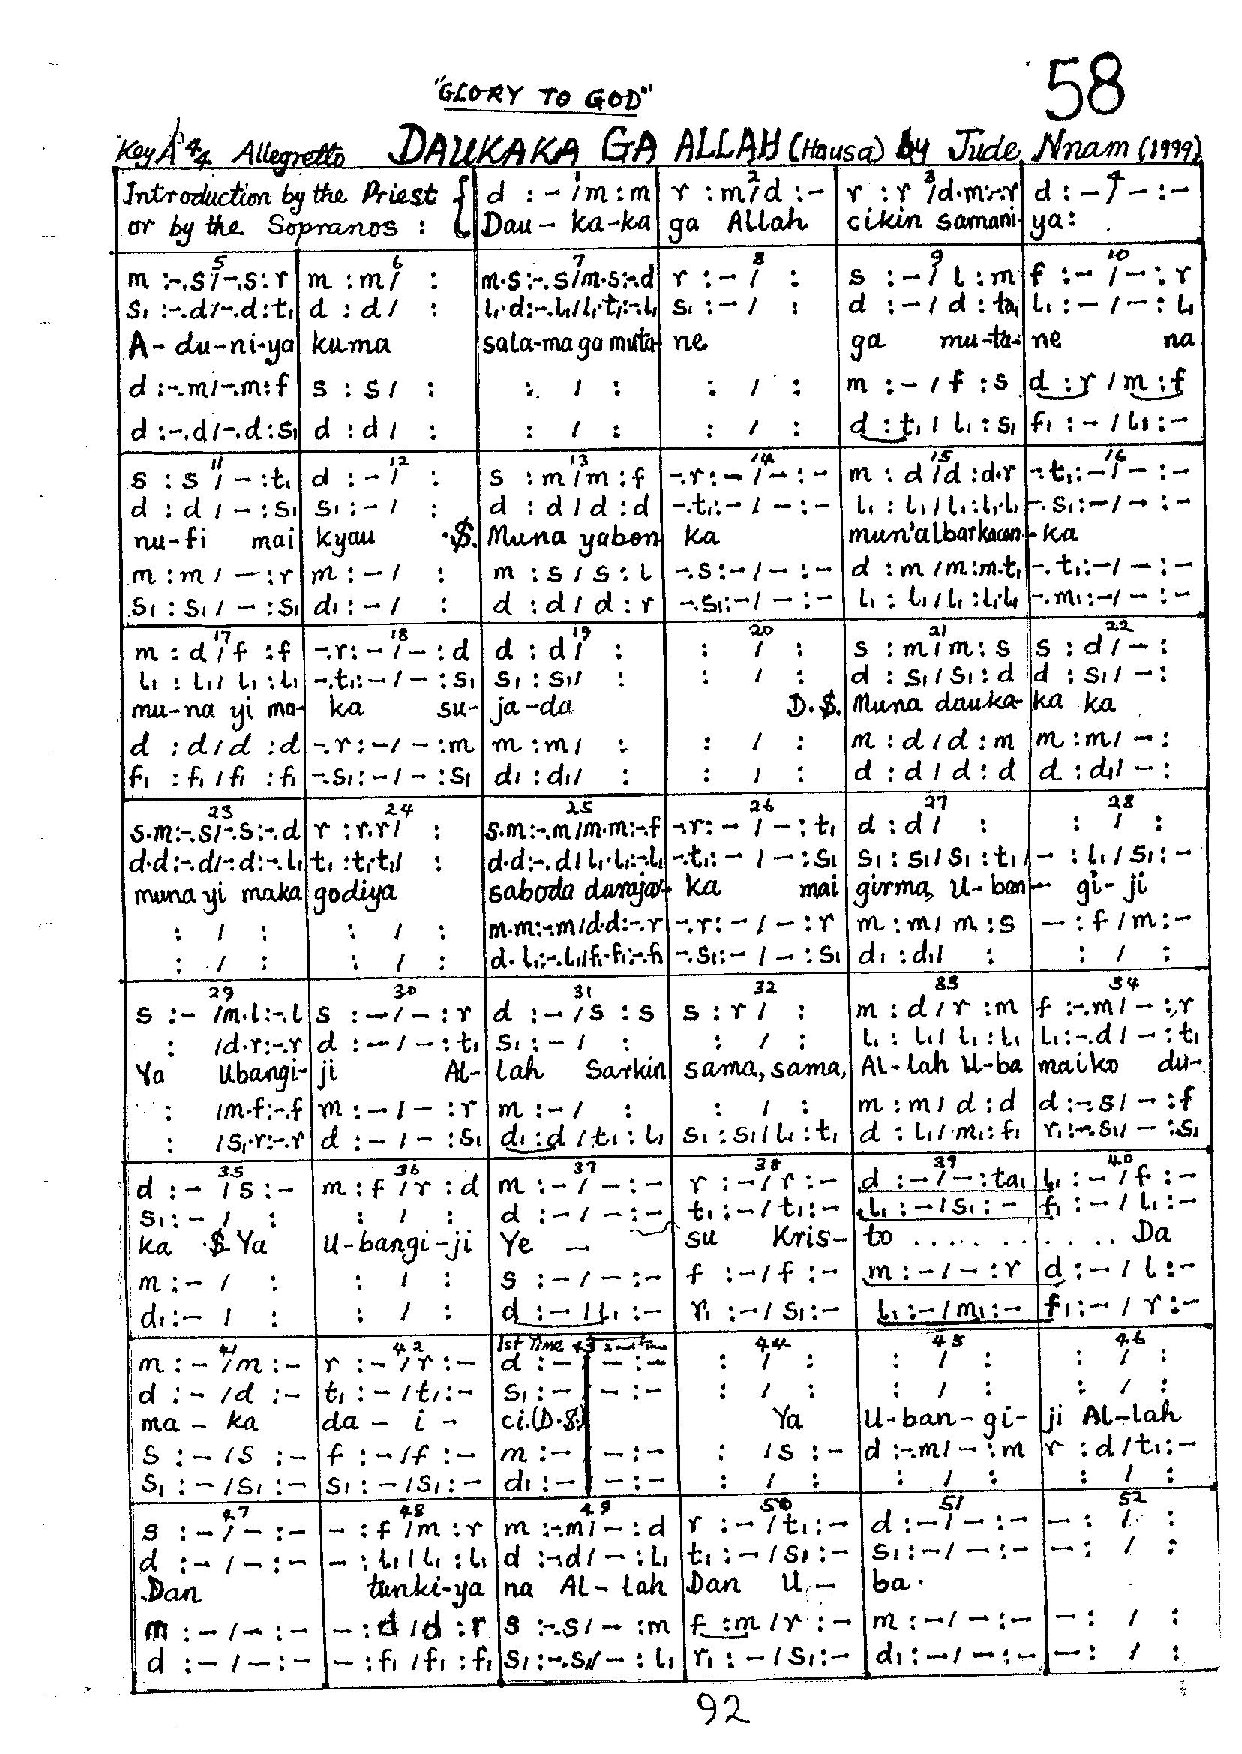 58
"GLORY TO GOD"
Key A 4/4 Allegretto DAUKAKA GA ALLAH (Hausa) by Jude Nnam (1999)
1 2 3 4
Introduction by the Priest { d : – / m : m | r : m / d : – | r : r / d.m:-.r | d : – / – : –
or by the Sopranos : { Dau – ka-ka | ga Allah | cikin samani- | ya:
5 6 7 8 9 10
m :-.s/-.s : r | m : m / : | m.s:-.s/m.s:-.d | r : – / : | s : – / l : m | f : – / – : r
s₁ :-.d/-.d : t₁ | d : d / : | l₁.d:-.l₁/l₁.t₁:-.l₁ | s₁ : – / : | d : – / d : ta₁ | l₁ : – / – : l₁
A- du-ni-ya | kuma | sala-ma ga muta- | ne | ga mu-ta- | ne na
d :-.m/-.m : f | s : s / : | : / : | : / : | m : – / f : s | d : r / m : f
d :-.d/-.d : s₁ | d : d / : | : / : | : / : | d : t₁ / l₁ : s₁ | f₁ : – / l₁ : –
11 12 13 14 15 16
s : s / – : t₁ | d : – / : | s : m / m : f | -.r : – / – : – | m : d / d : d.r | -.t₁ : – / – : –
d : d / – : s₁ | s₁ : – / : | d : d / d : d | -.t₁ : – / – : – | l₁ : l₁ / l₁ : l₁.l₁ | -.s₁ : – / – : –
nu-fi mai | kyau .$. | Muna yabon | ka | mun'albarkacan- | ka
m : m / – : r | m : – / : | m : s / s : l | -.s : – / – : – | d : m / m : m.t₁ | -.t₁ : – / – : –
s₁ : s₁ / – : s₁ | d₁ : – / : | d : d / d : r | -.s₁ : – / – : – | l₁ : l₁ / l₁ : l₁.l₁ | -.m₁ : – / – : –
17 18 19 20 21 22
m : d / f : f | -.r : – / – : d | d : d / : | : / : | s : m / m : s | s : d / – :
l₁ : l₁ / l₁ : l₁ | -.t₁ : – / – : s₁ | s₁ : s₁ / : | : / : | d : s₁ / s₁ : d | d : s₁ / – :
mu-na yi ma- | ka su- | ja-da | D.$. | Muna dauka- | ka ka
d : d / d : d | -.r : – / – : m | m : m / : | : / : | m : d / d : m | m : m / – :
f₁ : f₁ / f₁ : f₁ | -.s₁ : – / – : s₁ | d₁ : d₁ / : | : / : | d : d / d : d | d : d₁ / – :
23 24 25 26 27 28
s.m:-.s/-.s:-.d | r : r.r / : | s.m:-.m/m.m:-.f | -.r : – / – : t₁ | d : d / : | : / :
d.d:-.d/-.d:-.l₁ | t₁ : t₁.t₁ / : | d.d:-.d/l₁.l₁:-.l₁ | -.t₁ : – / – : s₁ | s₁ : s₁ / s₁ : t₁ | – : l₁ / s₁ : –
muna yi maka | godiya | saboda darajar- | ka mai | girma, U-ban | – gi-ji
: / : | : / : | m.m:-.m/d.d:-.r | -.r : – / – : r | m : m / m : s | – : f / m : –
: / : | : / : | d.l₁:-.l₁/f₁.f₁:-.f₁ | -.s₁ : – / – : s₁ | d₁ : d₁ / : | : / :
29 30 31 32 33 34
s : – / m.l:-.l | s : – / – : r | d : – / s : s | s : r / : | m : d / r : m | f :-.m / – : r
: / d.r:-.r | d : – / – : t₁ | s₁ : – / : | : / : | l₁ : l₁ / l₁ : l₁ | l₁ :-.d / – : t₁
Ya Ubangi- | ji Al- | lah Sarkin | sama, sama, | Al-lah U-ba | maiko du-
: / m.f:-.f | m : – / – : r | m : – / : | : / : | m : m / d : d | d :-.s / – : f
: / s₁.r:-.r | d : – / – : s₁ | d₁ : d / t₁ : l₁ | s₁ : s₁ / l₁ : t₁ | d : l₁ / m₁ : f₁ | r₁ :-.s₁ / – : s₁
35 36 37 38 39 40
d : – / s : – | m : f / r : d | m : – / – : – | r : – / r : – | d : – / – : ta₁ | l₁ : – / f : –
s₁ : – / : | : / : | d : – / – : – | t₁ : – / t₁ : – | l₁ : – / s₁ : – | f₁ : – / l₁ : –
ka .$. Ya | U-bangi-ji | Ye – | su Kris- | to . . . . . . | . . . . . Da
m : – / : | : / : | s : – / – : – | f : – / f : – | m : – / – : r | d : – / l : –
d₁ : – / : | : / : | d : – / l₁ : – | r₁ : – / s₁ : – | l₁ : – / m₁ : – | f₁ : – / r : –
41 42 1st Time 43 2nd time 44 45 46
m : – / m : – | r : – / r : – | d : – | – : – | : / : | : / : | : / :
d : – / d : – | t₁ : – / t₁ : – | s₁ : – | – : – | : / : | : / : | : / :
ma – ka | da – i – | ci.(D.$.) | Ya | U-ban-gi- | ji Al-lah
s : – / s : – | f : – / f : – | m : – | – : – | : / s : – | d :-.m / – : m | r : d / t₁ : –
s₁ : – / s₁ : – | s₁ : – / s₁ : – | d₁ : – | – : – | : / : | : / : | : / :
47 48 49 50 51 52
s : – / – : – | – : f / m : r | m :-.m / – : d | r : – / t₁ : – | d : – / – : – | – : / :
d : – / – : – | – : l₁ / l₁ : l₁ | d :-.d / – : l₁ | t₁ : – / s₁ : – | s₁ : – / – : – | – : / :
Dan | tunki-ya | na Al-lah | Dan U – | ba.
m : – / – : – | – : d / d : r | s :-.s / – : m | f : m / r : – | m : – / – : – | – : / :
d : – / – : – | – : f₁ / f₁ : f₁ | s₁ :-.s₁ / – : l₁ | r₁ : – / s₁ : – | d₁ : – / – : – | – : / :
92